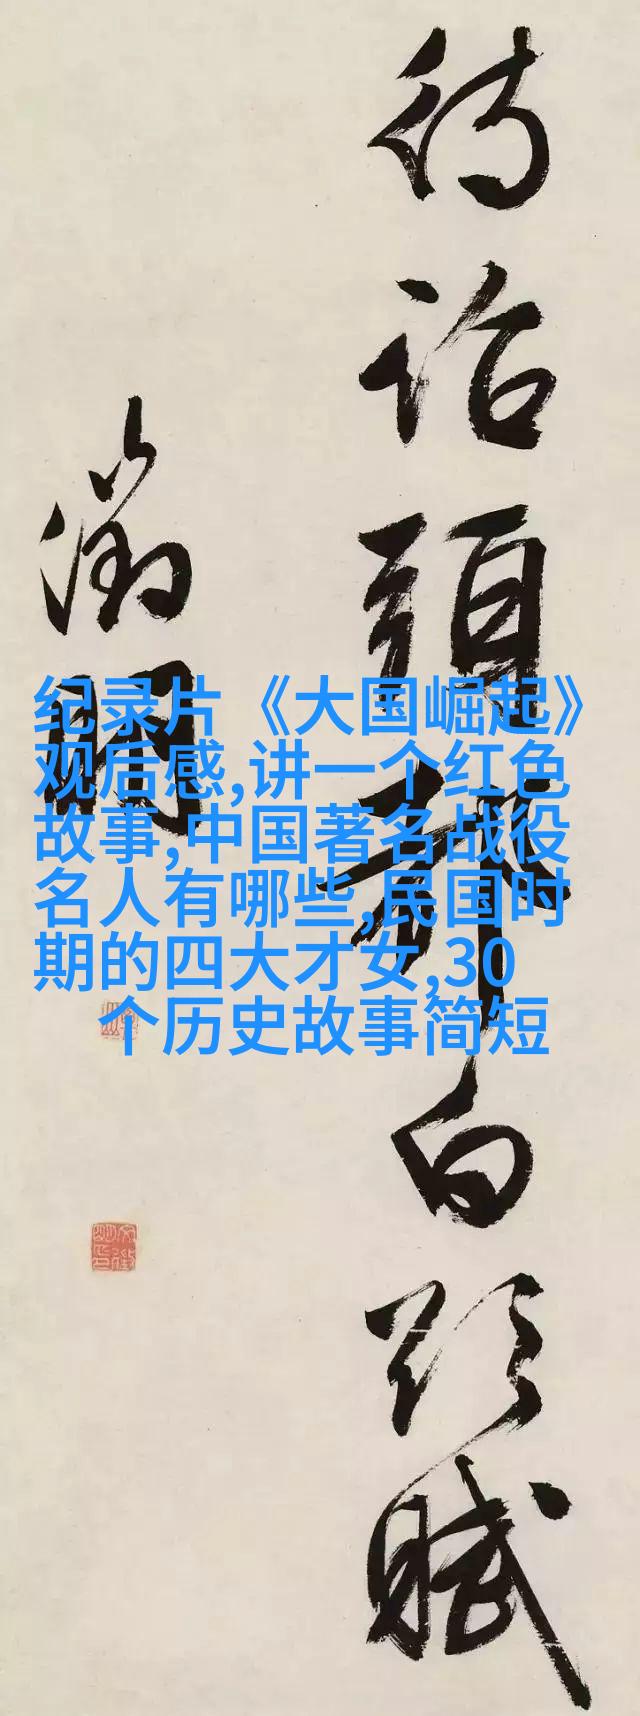 待詔頭白賦
徵明
纪录片《大国崛起》
观后感,讲一个红色
故事,中国著名战役
名人有哪些,民国时
期的四大才女,30
个历史故事简短